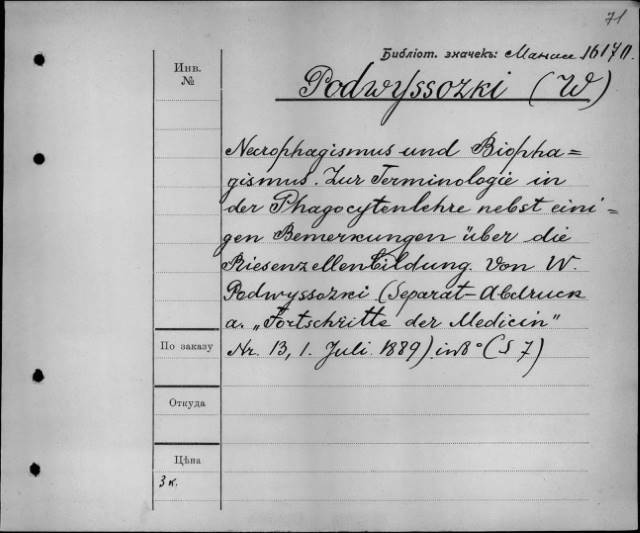 71
Библіот. значекъ: 16170.
Инв.
№
Podwyssozki (W)
Necrophagismus und Biopha=
gismus. Zur Terminologie in
der Phagocytenlehre nebst eini=
gen Bemerkungen über die
Riesenzellenbildung. Von W.
Podwyssozki (Separat-Abdruck
a. „Fortschritte der Medicin"
По заказу
Nr. 13, 1. Juli 1889) in 8° (S 7)
Откуда
Цѣна
3 к.